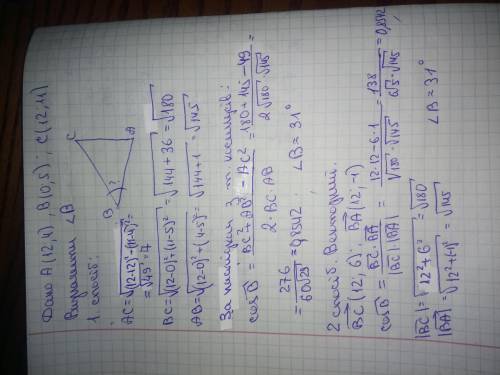 Дано A(12,4), B(0,5); C(12,11)
Визначити ∠B
1. спосіб:
C
B ?
A
AC=√(12-12)²+(11-4)²=
=√49=7
BC=√(12-0)²+(11-5)²=√144+36=√180
AB=√(12-0)²+(4-5)²=√144+1=√145
За наслідком з т. косинусів:
cosB=(BC²+AB²-AC²)/(2·BC·AB)=(180+145-49)/(2√180·√145)=
=276/(60√29)=0,8542 ∠B=31°
2 спосіб. Векторний.
BC(12,6). BA(12,-1)
cosB=(BC·BA)/(|BC|·|BA|)=(12·12-6·1)/(√180·√145)=138/(6√5·√145)=0,8542,
|BC|=√12²+6²=√180
∠B=31°
|BA|=√12²+(-1)²=√145